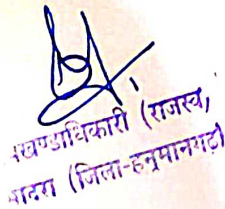 खण्डाधिकारी (राजस्व)
भादरा (जिला-हनुमानगढ़)